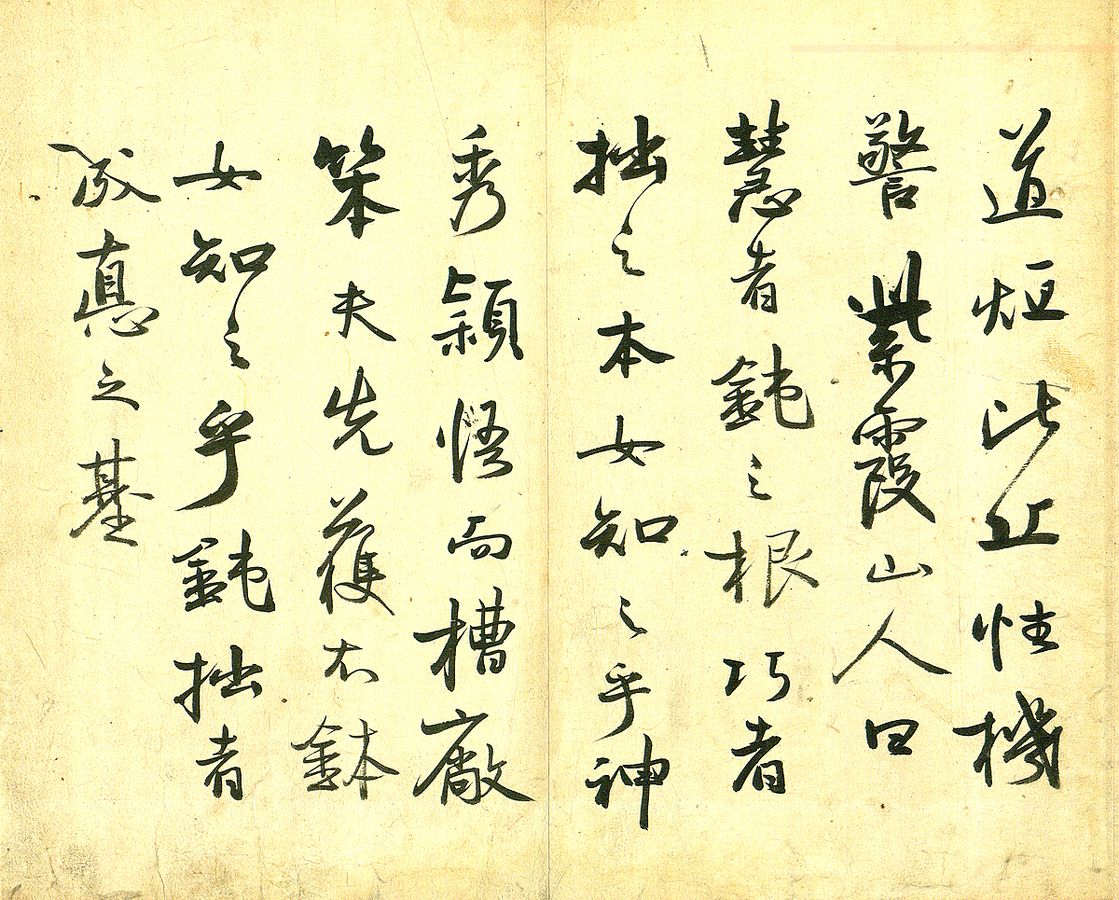 道烜此止性機
警紫霞山人曰
慧者鈍之根巧者
拙之本女知之乎神
秀穎悟而槽廠
笨夫先獲衣鉢
女知之乎鈍拙者
成悳之基